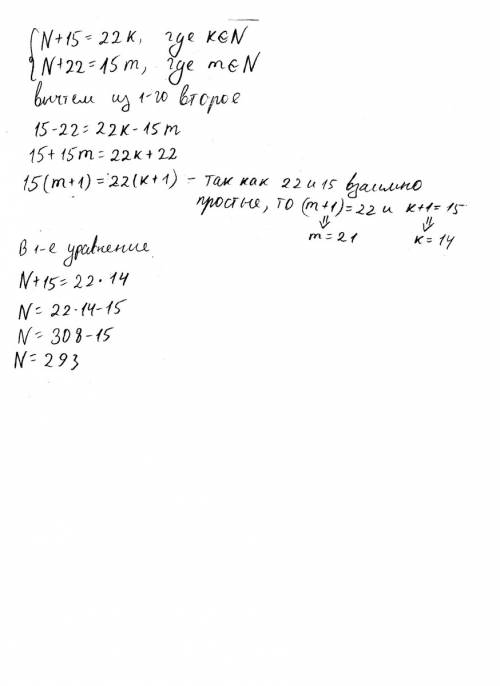 { N+15 = 22k, где k∈N
N+22 = 15m, где m∈N
вычтем из 1-го второе
15-22 = 22k-15m
15+15m = 22k+22
15(m+1) = 22(k+1) - так как 22 и 15 взаимно
простые, то (m+1)=22 и k+1=15
⇓ ⇓
m=21 k=14
В 1-е уравнение
N+15 = 22·14
N = 22·14-15
N = 308-15
N = 293